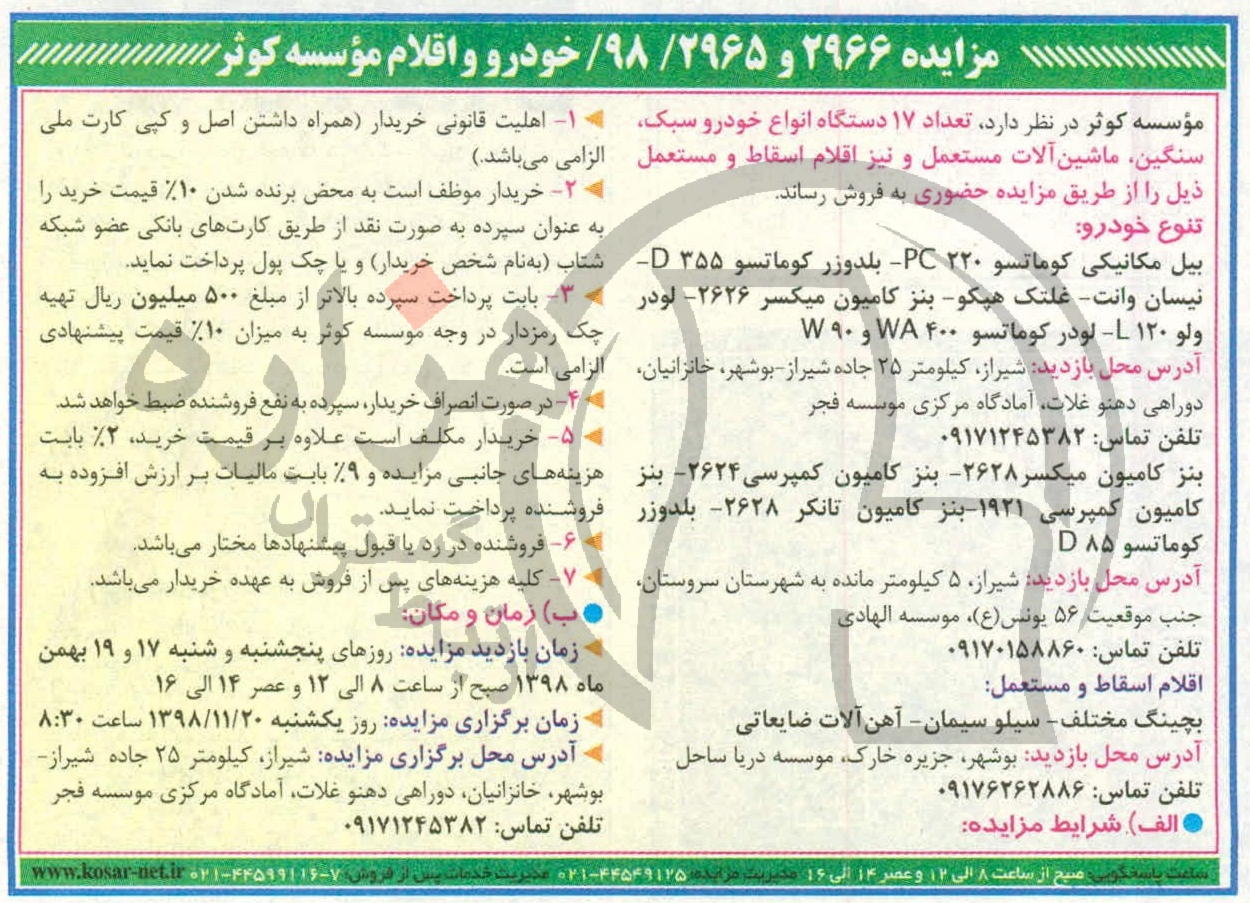 مزایده ۲۹۶۶ و ۲۹۶۵/ ۹۸/ خودرو و اقلام مؤسسه کوثر
مؤسسه کوثر در نظر دارد، تعداد ۱۷ دستگاه انواع خودرو سبک،
سنگین، ماشین‌آلات مستعمل و نیز اقلام اسقاط و مستعمل
ذیل را از طریق مزایده حضوری به فروش رساند.
تنوع خودرو:
بیل مکانیکی کوماتسو ۲۲۰ PC- بلدوزر کوماتسو ۳۵۵ D-
نیسان وانت- غلتک هپکو- بنز کامیون میکسر ۲۶۲۶- لودر
ولو ۱۲۰ L- لودر کوماتسو ۴۰۰ WA و ۹۰ W
آدرس محل بازدید: شیراز، کیلومتر ۲۵ جاده شیراز-بوشهر، خانزانیان،
دوراهی دهنو غلات، آمادگاه مرکزی موسسه فجر
تلفن تماس: ۰۹۱۷۱۲۴۵۳۸۲
بنز کامیون میکسر۲۶۲۸- بنز کامیون کمپرسی۲۶۲۴- بنز
کامیون کمپرسی ۱۹۲۱-بنز کامیون تانکر ۲۶۲۸- بلدوزر
کوماتسو ۸۵ D
آدرس محل بازدید: شیراز، ۵ کیلومتر مانده به شهرستان سروستان،
جنب موقعیت ۵۶ یونس(ع)، موسسه الهادی
تلفن تماس: ۰۹۱۷۰۱۵۸۸۶۰
اقلام اسقاط و مستعمل:
بچینگ مختلف- سیلو سیمان- آهن‌آلات ضایعاتی
آدرس محل بازدید: بوشهر، جزیره خارک، موسسه دریا ساحل
تلفن تماس: ۰۹۱۷۶۲۶۲۸۸۶
الف) شرایط مزایده:
۱- اهلیت قانونی خریدار (همراه داشتن اصل و کپی کارت ملی
الزامی می‌باشد.)
۲- خریدار موظف است به محض برنده شدن ۱۰٪ قیمت خرید را
به عنوان سپرده به صورت نقد از طریق کارت‌های بانکی عضو شبکه
شتاب (به‌نام شخص خریدار) و یا چک پول پرداخت نماید.
۳- بابت پرداخت سپرده بالاتر از مبلغ ۵۰۰ میلیون ریال تهیه
چک رمزدار در وجه موسسه کوثر به میزان ۱۰٪ قیمت پیشنهادی
الزامی است.
۴- در صورت انصراف خریدار، سپرده به نفع فروشنده ضبط خواهد شد.
۵- خریدار مکلف است علاوه بر قیمت خرید، ۲٪ بابت
هزینه‌های جانبی مزایده و ۹٪ بابت مالیات بر ارزش افزوده به
فروشنده پرداخت نماید.
۶- فروشنده در رد یا قبول پیشنهادها مختار می‌باشد.
۷- کلیه هزینه‌های پس از فروش به عهده خریدار می‌باشد.
ب) زمان و مکان:
زمان بازدید مزایده: روزهای پنجشنبه و شنبه ۱۷ و ۱۹ بهمن
ماه ۱۳۹۸ صبح از ساعت ۸ الی ۱۲ و عصر ۱۴ الی ۱۶
زمان برگزاری مزایده: روز یکشنبه ۱۳۹۸/۱۱/۲۰ ساعت ۸:۳۰
آدرس محل برگزاری مزایده: شیراز، کیلومتر ۲۵ جاده شیراز-
بوشهر، خانزانیان، دوراهی دهنو غلات، آمادگاه مرکزی موسسه فجر
تلفن تماس: ۰۹۱۷۱۲۴۵۳۸۲
ساعت پاسخگویی: صبح از ساعت ۸ الی ۱۲ و عصر ۱۴ الی ۱۶ مدیریت مزایده: ۴۴۵۴۹۱۲۵-۰۲۱ مدیریت خدمات پس از فروش: ۷-۴۴۵۹۹۱۱۶-۰۲۱ www.kosar-net.ir
هزاره
گستران